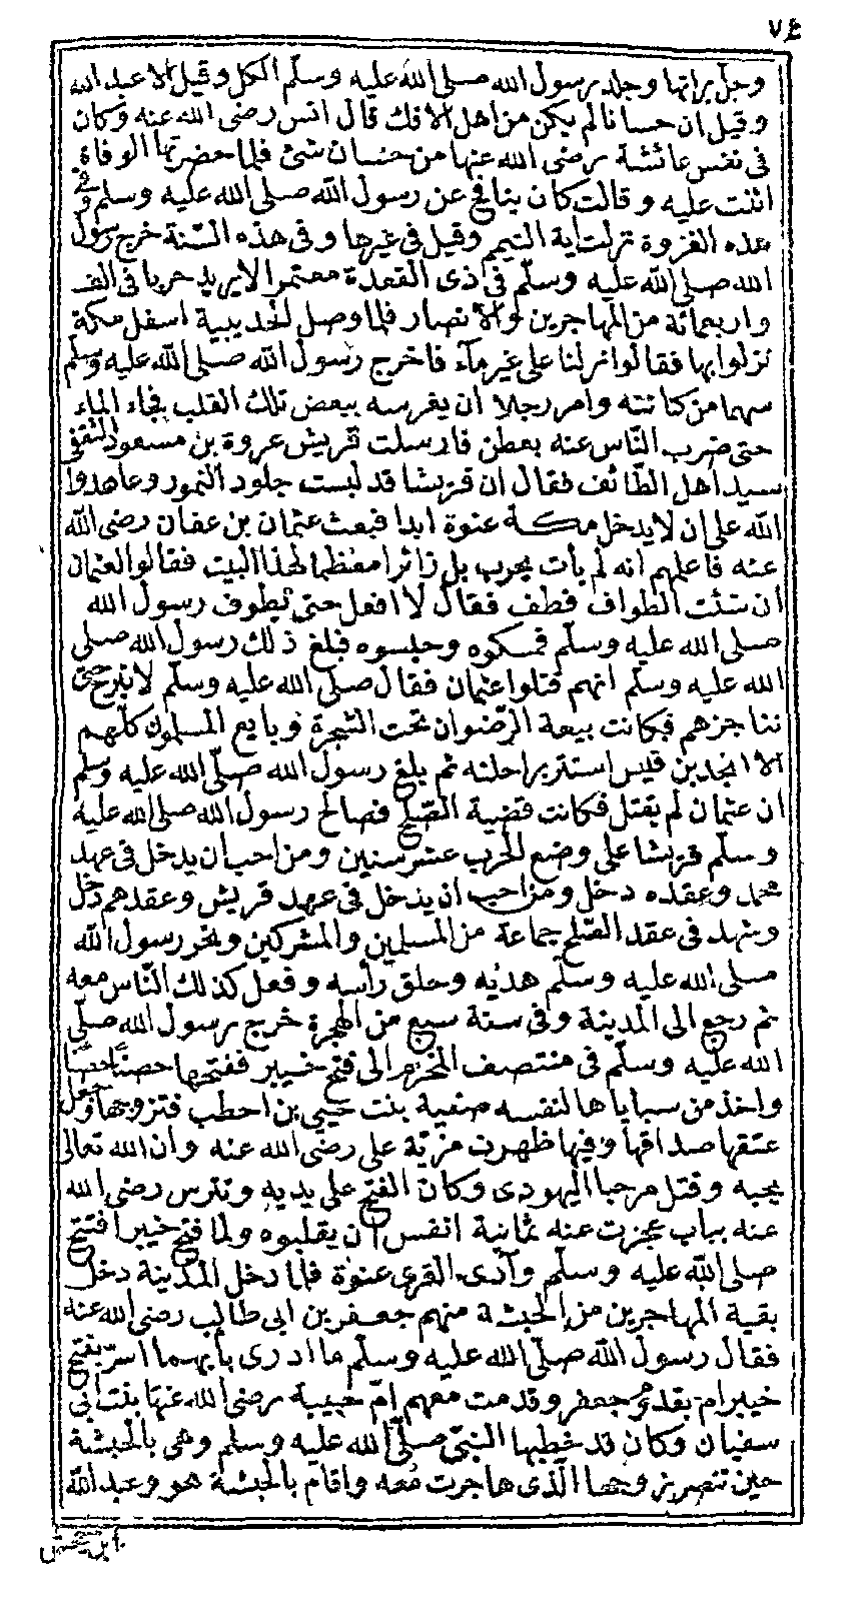 ٧٤
وجل براتها وجلد رسول الله صلى الله عليه وسلم الكل وقيل الا عبد الله
وقيل ان حسانا لم يكن من اهل الافك قال انس رضى الله عنه وكان
فى نفس عائشة رضى الله عنها من حسان شئ فلما حضرتها الوفاة
اثنت عليه وقالت كان ينافح عن رسول الله صلى الله عليه وسلم وفى
هذه الغزوة نزلت اية التيمم وقيل فى غيرها وفى هذه السنة خرج رسول
الله صلى الله عليه وسلم فى ذى القعدة معتمرا لا يريد حربا فى الف
واربعمائة من المهاجرين والانصار فلما وصل الحديبية اسفل مكة
نزلوا بها فقالوا نزلنا على غير مآء فاخرج رسول الله صلى الله عليه وسلم
سهما من كنانته وامر رجلا ان يغرسه ببعض تلك القلب فجاء الماء
حتى ضرب الناس عنه بعطن فارسلت قريش عروة بن مسعود الثقفى
سيد اهل الطائف فقال ان قريشا قد لبست جلود النمور وعاهدوا
الله على ان لا يدخل مكة عنوة ابدا فبعث عثمان بن عفان رضى الله
عنه فاعلمهم انه لم يأت بحرب بل زائرا معظما لهذا البيت فقالوا لعثمان
ان شئت الطواف فطف فقال لا افعل حتى يطوف رسول الله
صلى الله عليه وسلم فمسكوه وحبسوه فبلغ ذلك رسول الله صلى
الله عليه وسلم انهم قتلوا عثمان فقال صلى الله عليه وسلم لا نبرح حتى
نناجزهم فكانت بيعة الرضوان تحت الشجرة وبايع المسلمون كلهم
الا الجد بن قيس استتر براحلته ثم بلغ رسول الله صلى الله عليه وسلم
ان عثمان لم يقتل فكانت قضية الصلح فصالح رسول الله صلى الله عليه
وسلم قريشا على وضع الحرب عشر سنين ومن احب ان يدخل فى عهد
محمد وعقده دخل ومن احب ان يدخل فى عهد قريش وعقدهم دخل
وشهد فى عقد الصلح جماعة من المسلمين والمشركين ونحر رسول الله
صلى الله عليه وسلم هديه وحلق رأسه وفعل كذلك الناس معه
ثم رجع الى المدينة وفى سنة سبع من الهجرة خرج رسول الله صلى
الله عليه وسلم فى منتصف المحرم الى فتح خيبر ففتحها حصنا حصنا
واخذ من سباياها لنفسه صفية بنت حيى بن احطب فتزوجها وجعل
عتقها صداقها وفيها ظهرت مزية على رضى الله عنه وان الله تعالى
يحبه وقتل مرحبا اليهودى وكان الفتح على يديه وتترس رضى الله
عنه بباب عجزت عنه ثمانية انفس ان يقلبوه ولما فتح خيبر افتتح
صلى الله عليه وسلم وادى القرى عنوة فلما دخل المدينة دخل
بقية المهاجرين من الحبشة منهم جعفر بن ابى طالب رضى الله عنه
فقال رسول الله صلى الله عليه وسلم ما ادرى بايهما اسر بفتح
خيبر ام بقدوم جعفر وقدمت معهم ام حبيبة رضى الله عنها بنت ابى
سفيان وكان قد خطبها النبى صلى الله عليه وسلم وهى بالحبشة
حين تنصر زوجها الذى هاجرت معه واقام بالحبشة هو وعبد الله
ابن جحش